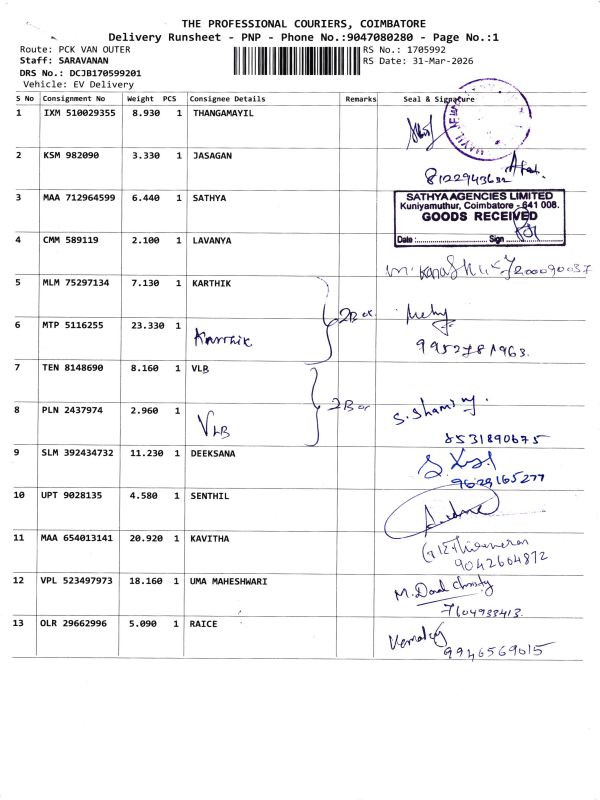 THE PROFESSIONAL COURIERS, COIMBATORE
Delivery Runsheet - PNP - Phone No.:9047080280 - Page No.:1
Route: PCK VAN OUTER
RS No.: 1705992
Staff: SARAVANAN
RS Date: 31-Mar-2026
DRS No.: DCJB170599201
Vehicle: EV Delivery
S No Consignment No Weight PCS Consignee Details Remarks Seal & Signature
1 IXM 510029355 8.930 1 THANGAMAYIL
2 KSM 982090 3.330 1 JASAGAN
8122943632
3 MAA 712964599 6.440 1 SATHYA
SATHYA AGENCIES LIMITED
Kuniyamuthur, Coimbatore - 641 008.
GOODS RECEIVED
Date : Sign
4 CMM 589119 2.100 1 LAVANYA
5 MLM 75297134 7.130 1 KARTHIK
2Box
6 MTP 5116255 23.330 1 Karthik
9952781963.
7 TEN 8148690 8.160 1 VLB
2Box
8 PLN 2437974 2.960 1 VLB
S. Shamini
8531890675
9 SLM 392434732 11.230 1 DEEKSANA
9629165277
10 UPT 9028135 4.580 1 SENTHIL
11 MAA 654013141 20.920 1 KAVITHA
9042604872
12 VPL 523497973 18.160 1 UMA MAHESHWARI
7604933413.
13 OLR 29662996 5.090 1 RAICE
9946569015